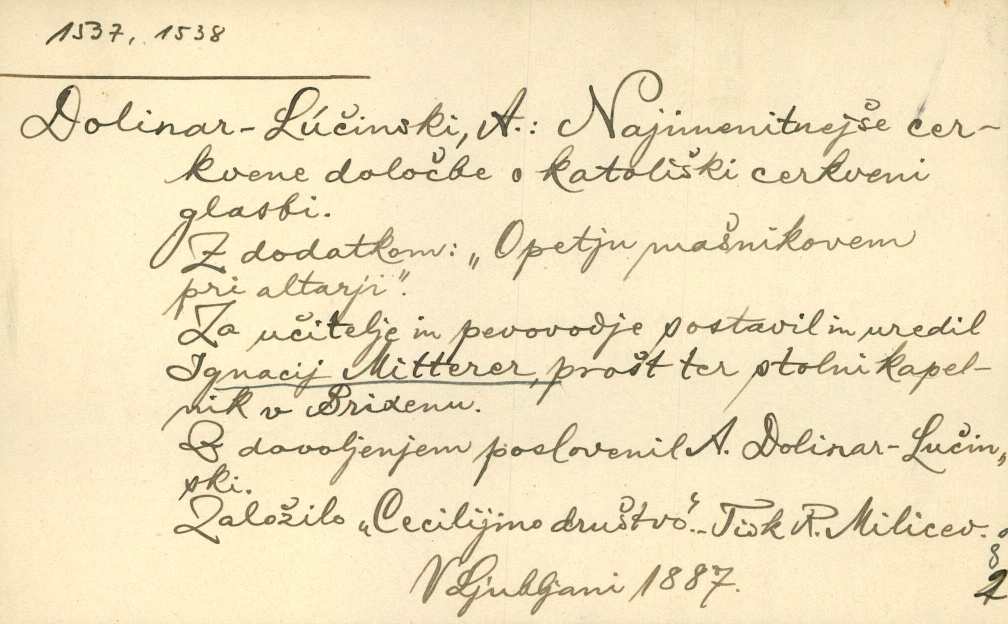 1537, 1538
Dolinar-Lúčinski, A.: Najimenitnejše cer-
kvene določbe o katoliški cerkveni
glasbi.
Z dodatkom: „O petju mašnikovem
pri altarji".
Za učitelje in pevovodje sostavil in uredil
Ignacij Mitterer, prošt ter stolni kapel-
nik v Brixenu.
Z dovoljenjem poslovenil A. Dolinar-Lučin„
ski.
Založilo „Cecilijino društvo". - Tisk R. Milicev.
8
V Ljubljani 1887.
2